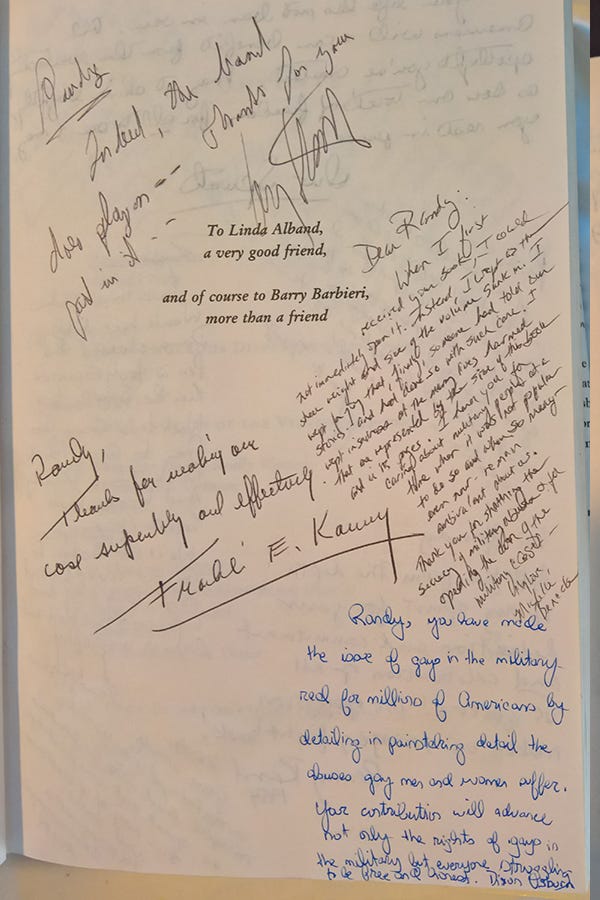 Randy
Indeed, the band
does play on -- Thanks for your
part in it --
To Linda Alband,
a very good friend,
and of course to Barry Barbieri,
more than a friend
Dear Randy:
When I first
received your book, I could
not immediately open it. Instead, I wept as the
sheer weight and size of the volume sank in. I
wept for joy that, finally someone had told our
stories - and had done so with such care. I
wept in sadness at the many lives harmed
that are represented by the size of this book
and its pages. I thank you for
caring about military people at a
time when it was not popular
to do so and when so many -
even now - remain
ambivalent about us.
Thank you for shattering the
secrecy of military abuses & for
opening the door of the
military closet -
Michelle
Benecke
Randy,
Thanks for making our
case superbly and effectively.
Franklin E. Kameny
Randy, you have made
the issue of gays in the military
real for millions of Americans by
detailing in painstaking detail the
abuses gay men and women suffer.
Your contribution will advance
not only the rights of gays in
the military but everyone struggling
to be free and honest. Dixon Osburn